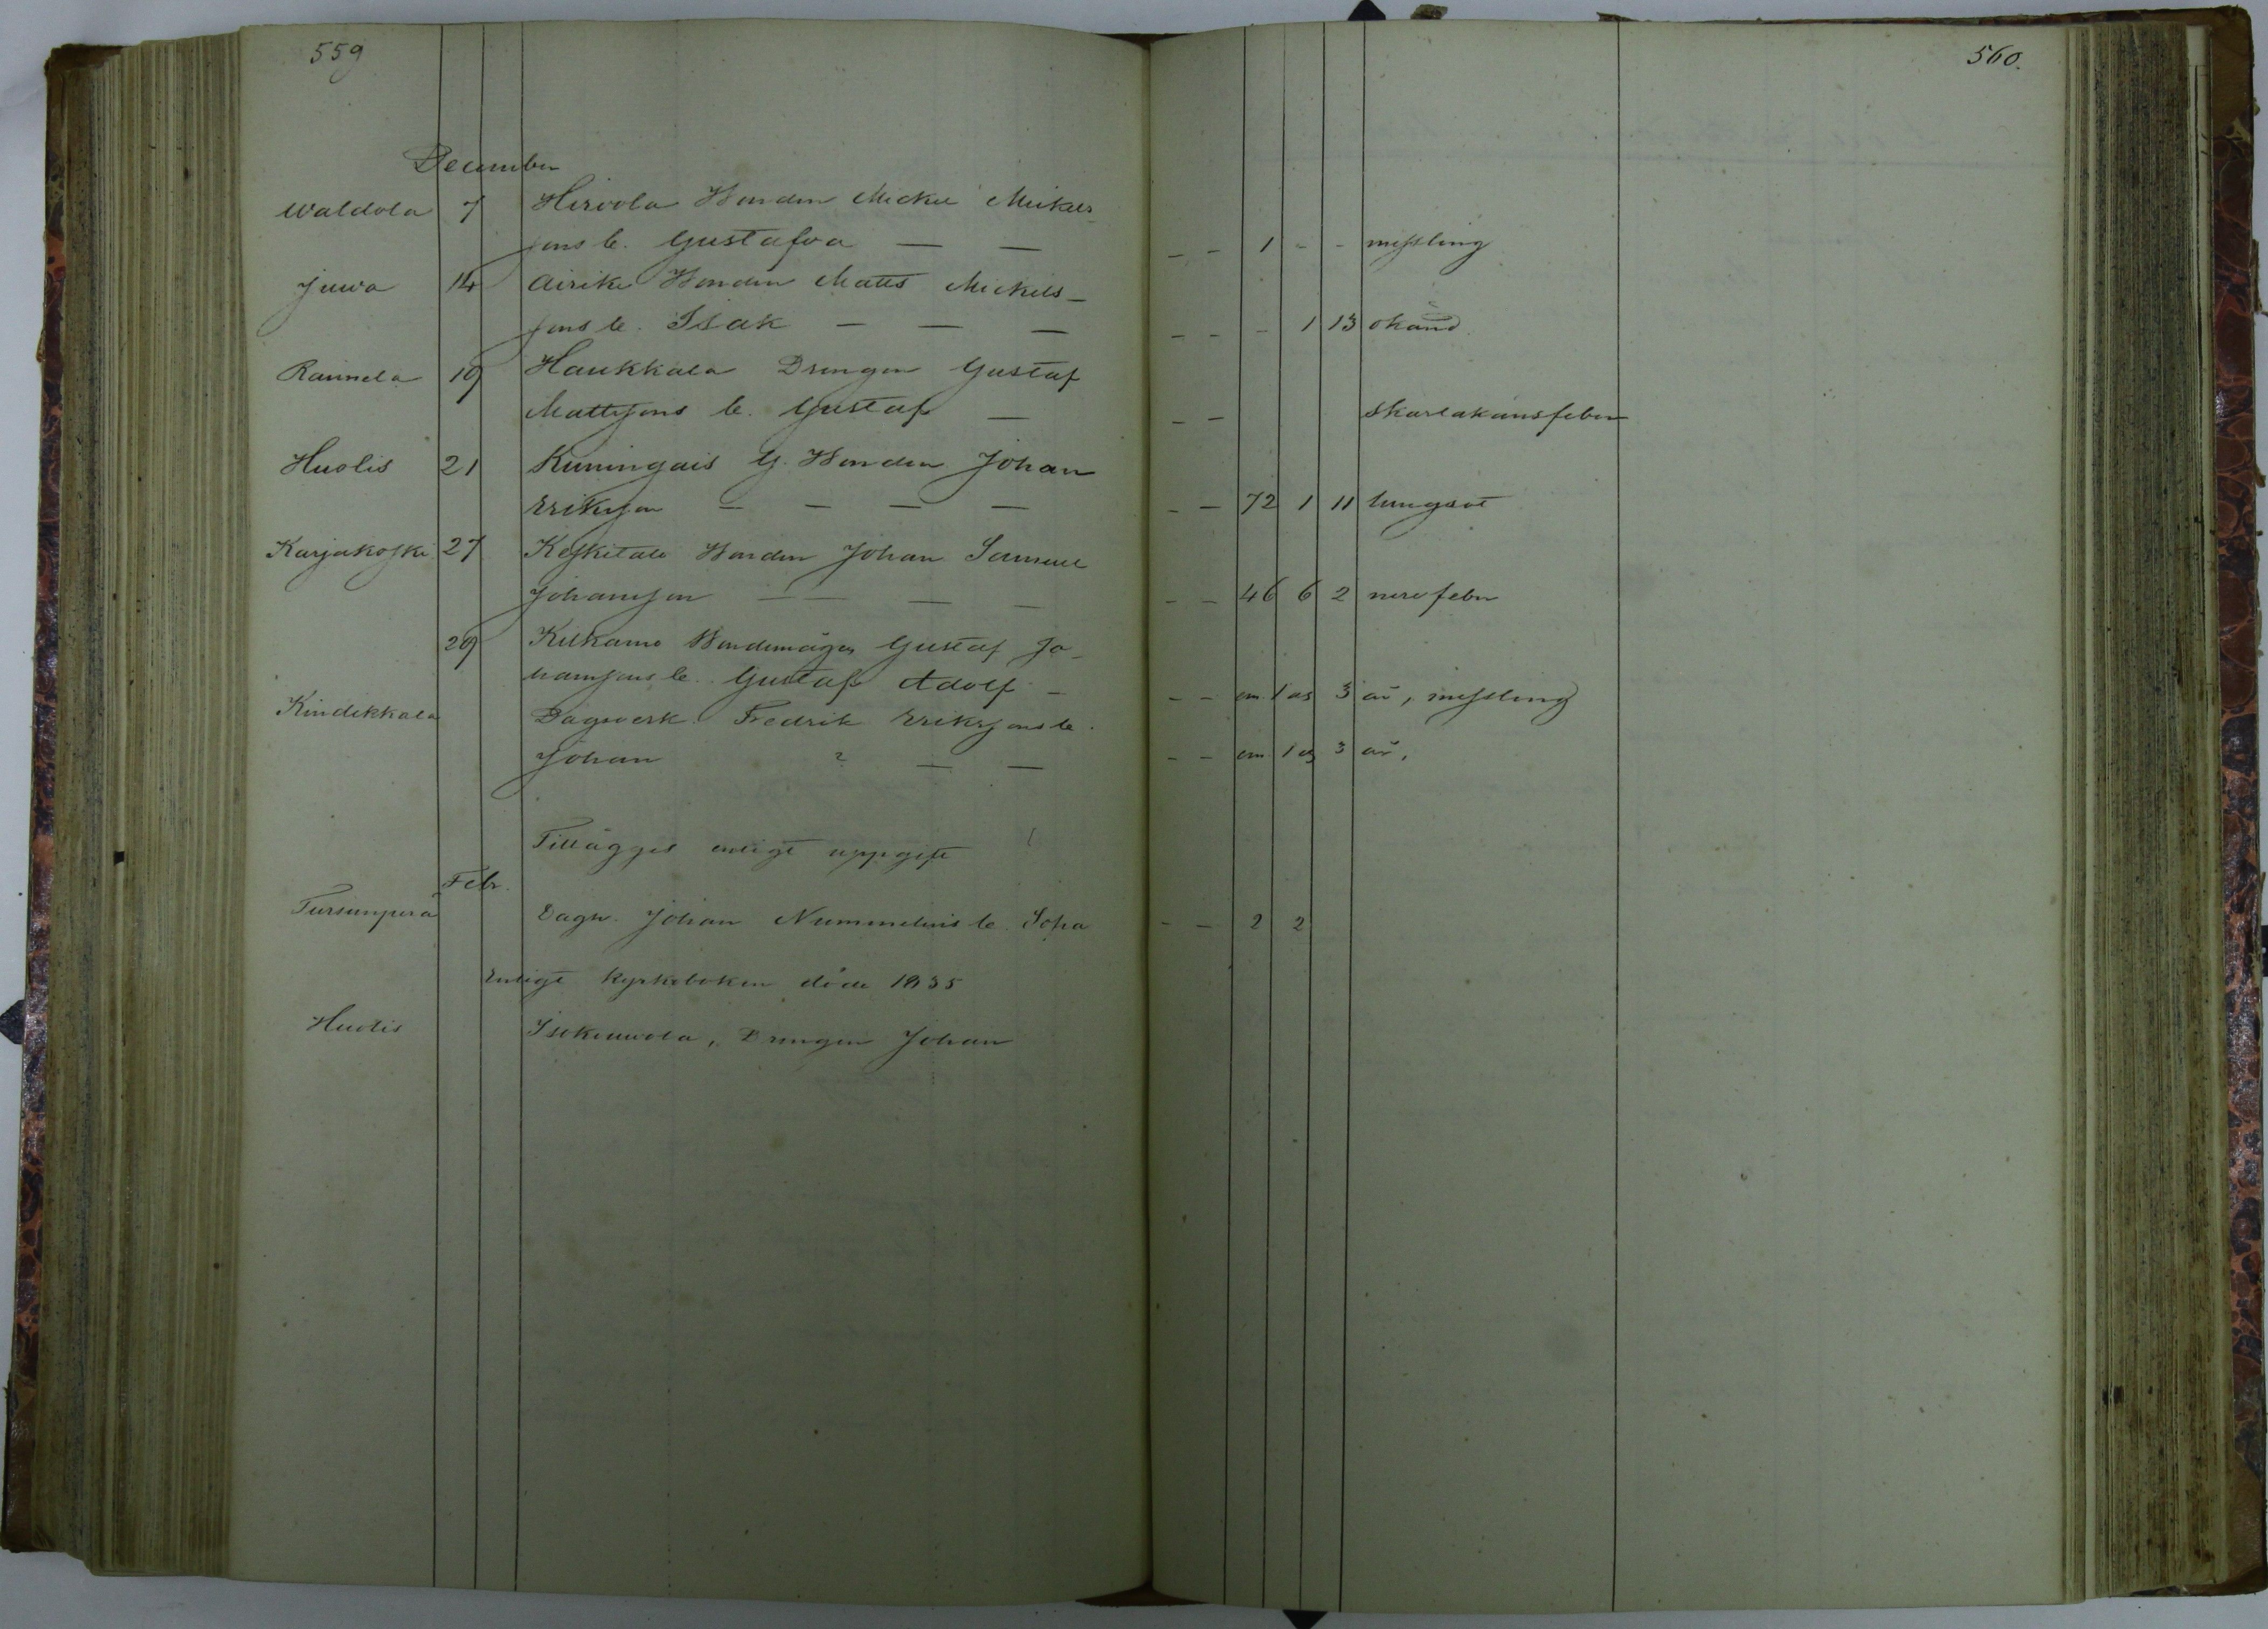 559
560.
December
Waldola 7 Hirvola Bonden Mickel Mickels-
sons b. Gustafva — — — — 1 - - messling
Juva 14 Airike Bonden Matts Mickels-
sons b. Isak — — — — — - 1 13 okänd
Rannela 19 Haukkala Drengen Gustaf
Mattssons b. Gustaf — — — skarlakansfeber
Huolis 21 Kuningais G. Bonden Johan
Eriksson — — — — — — 72 1 11 lungsot
Karjakoski 27 Keskitalo Bonden Johan Samuel
Johansson — — — — — — 46 6 2 nervfeber
29 Kilkamo Bondemågen Gustaf Jo-
hanssons b. Gustaf Adolf — — — em. 1 as 3 år, messling
Kindikkala Dagsverk. Fredrik Erikssons b.
Johan ? — — — — em 1 as 3 år,
Tillägges enligt uppgift
Febr.
Tursunperä Dagsv. Johan Nummelins b. Sofia — — 2 2
Enligt kyrkoboken döde 1835
Huolis Drengen Johan